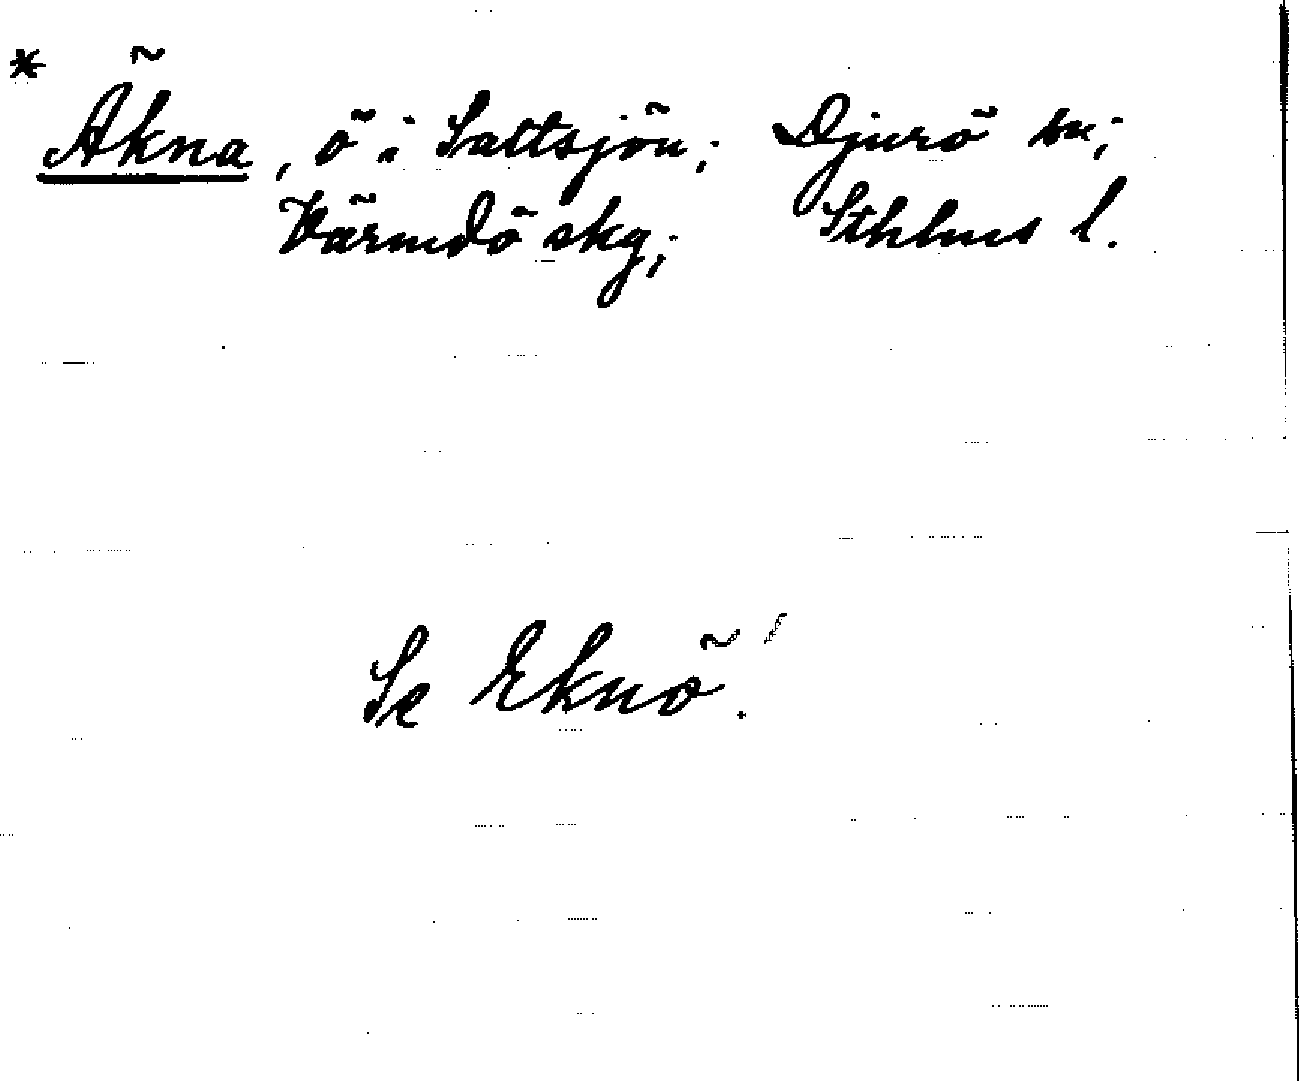 * Äkna, ö i Saltsjön; Djurö sn;
Värmdö skg; Sthlms l.
Se Eknö.